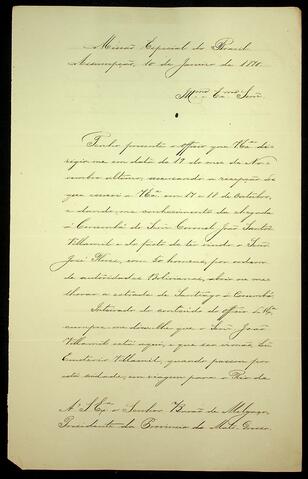 Missão Especial do Brasil
Assumpção, 10 de Janeiro de 1870.
Illmo e Exmo Senr
Tenho presente o officio que V.Exa di-
rigio me em data de 19 do mez de No-
vembro ultimo, accusando a recepção do
que escrevi a V.Exa em 17 de Outubro,
e dando me conhecimento da chegada
á Corumbá do Senr Coronel João Santos
Villamil e do facto de ter vindo o Senr
José Flores, com 50 homens, por ordem
de autoridades Bolivianas, abrir ou me-
lhorar a estrada de Santiago a Corumbá.
Inteirado do conteudo do officio de V.Exa
cumpre me dizer lhe que o Senr João
Villamil está aqui, e que seu irmão Senr
Villamil, quando passou por
esta cidade, em viagem para o Rio da
A S. Exa o Senhor Barão de Melgaço,
Presidente da Provincia de Mato-Grosso.